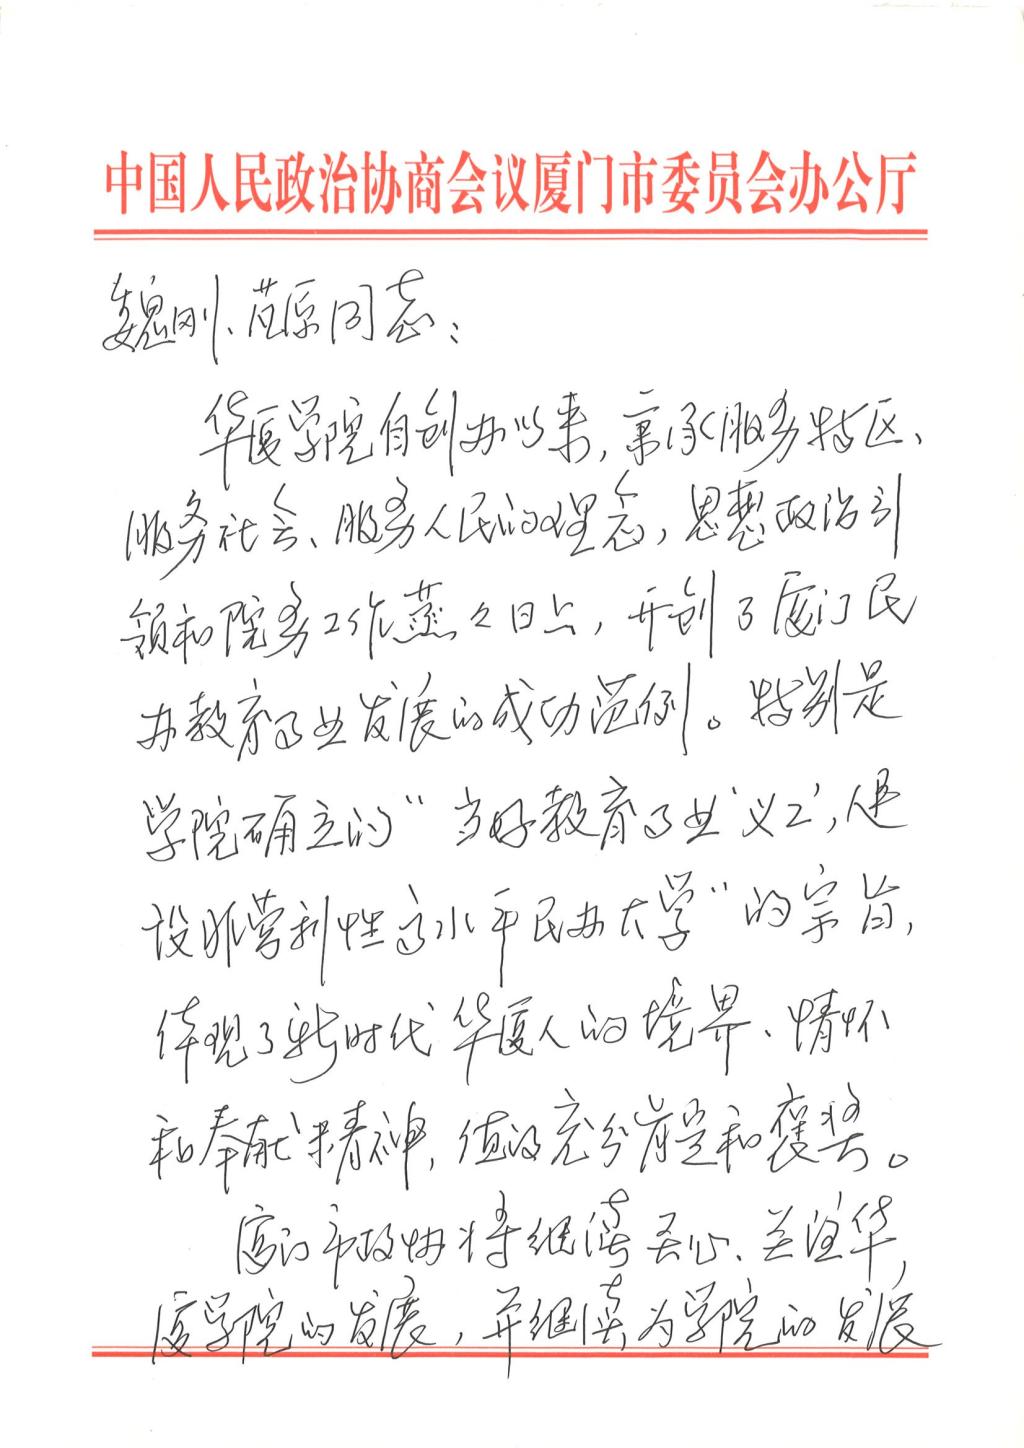 中国人民政治协商会议厦门市委员会办公厅
魏刚、范原同志：
华厦学院自创办以来，禀承服务特区、
服务社会、服务人民的理念，思想政治引
领和院务工作蒸々日上，开创了厦门民
办教育事业发展的成功范例。特别是
学院确立的“当好教育事业‘义工’，建
设非营利性高水平民办大学”的宗旨，
体现了新时代华厦人的境界、情怀
和奉献精神，值得充分肯定和褒奖。
厦门市政协将继续关心、关注华
厦学院的发展，并继续为学院的发展